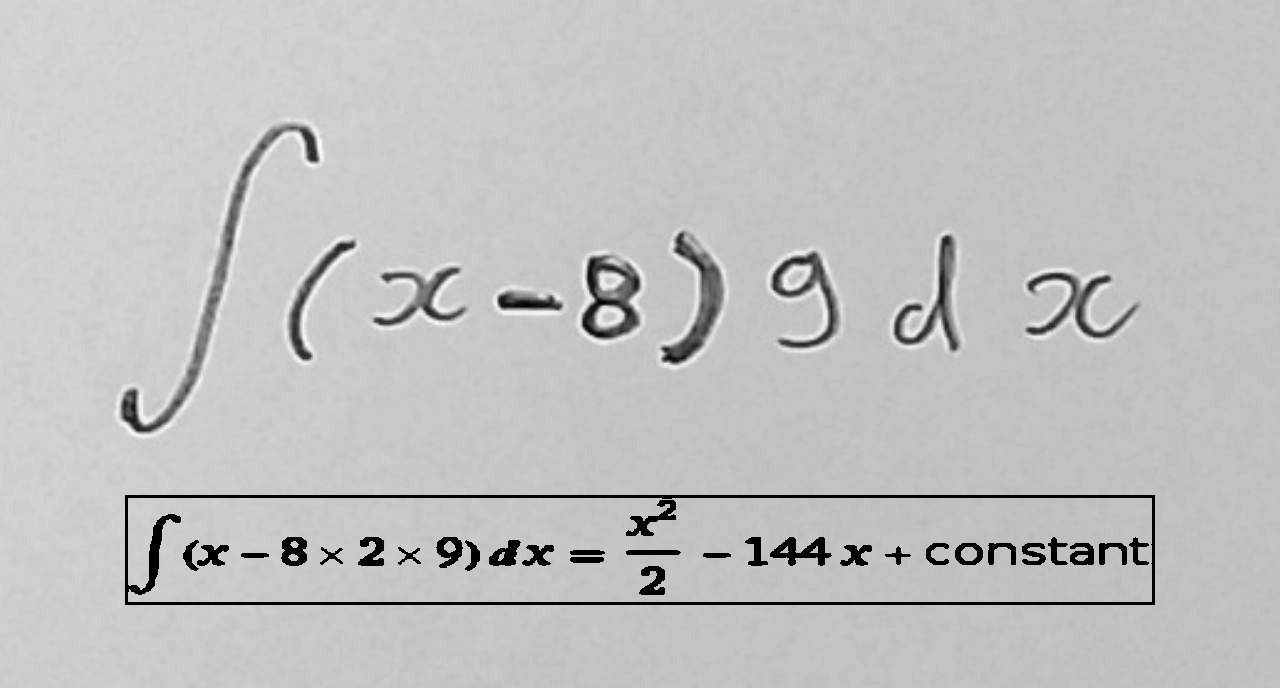 ∫(x-8) 9 d x
∫(x − 8 × 2 × 9) dx = x²/2 − 144 x + constant